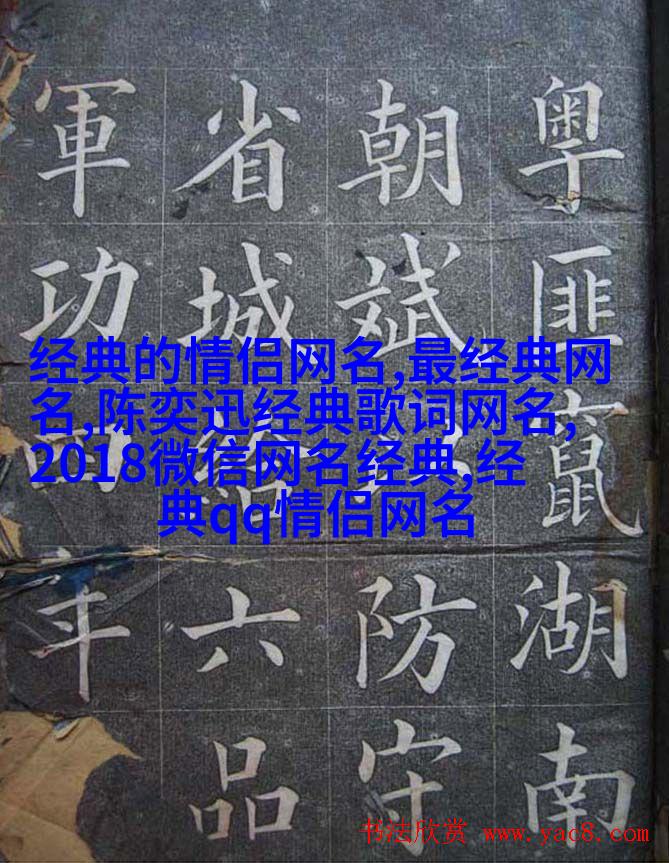 粤匪竄湖南
朝斌防守
省城給六品
軍功
经典的情侣网名,最经典网
名,陈奕迅经典歌词网名,
2018微信网名经典,经
典qq情侣网名
书法欣赏 www.yac8.com